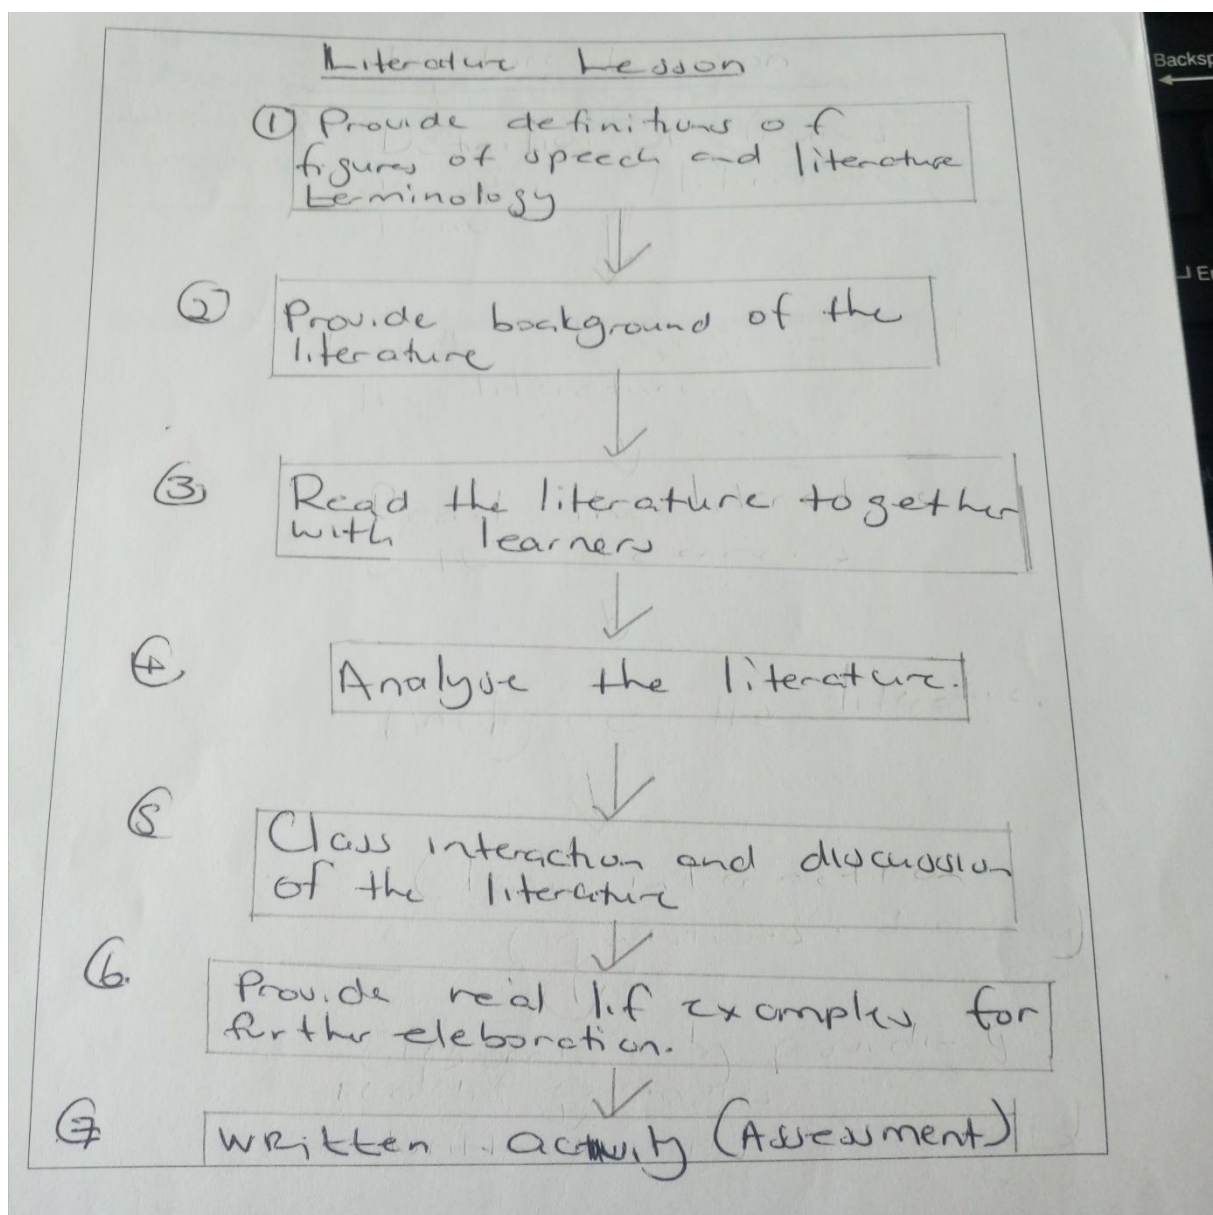 Literature Lesson
① Provide definitions of
figures of speech and literature
terminology
② Provide background of the
literature
③ Read the literature together
with learners
④ Analyse the literature.
⑤ Class interaction and discussion
of the literature
⑥ Provide real lif examples for
further eleboration.
⑦ Written activity (Assessment)
Backsp